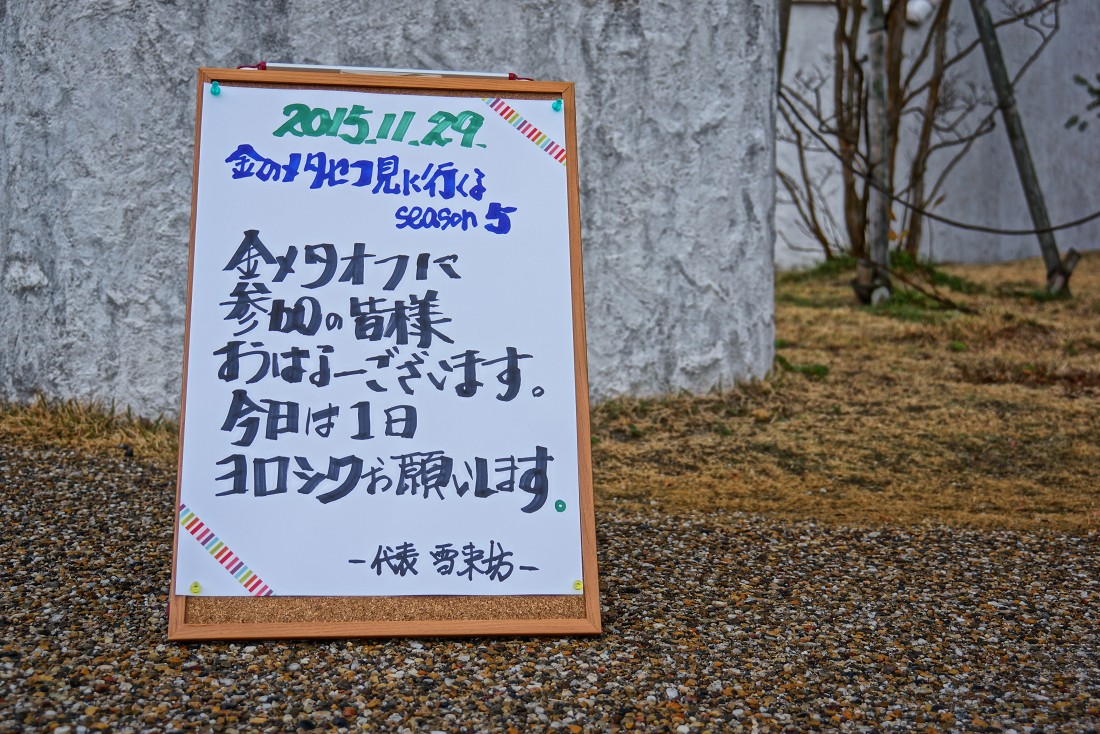 2015.11.29.
金のメタセコ見に行くよ
season 5
金メタオフに
参加の皆様
おはよーございます。
今日は1日
ヨロシクお願いします。
-代表 雪来坊-